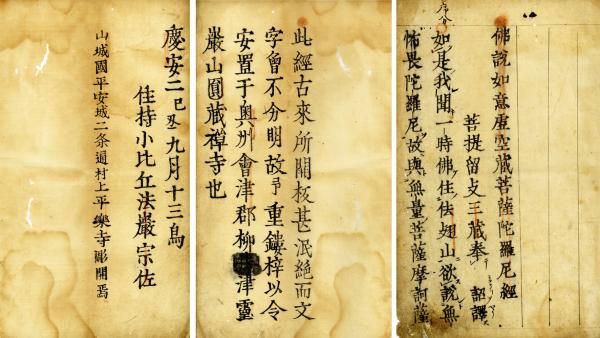 佛說如意虛空藏菩薩陀羅尼經
菩提留支三藏奉 詔譯
序分
如是我聞一時佛住佉翅山欲說無
怖畏陀羅尼故與無量菩薩摩訶薩
此經古來所開板甚泯絕而文
字會不分明故予重鏤梓以令
安置于奧州會津郡柳津靈
巖山圓藏禪寺也
慶安二己丑九月十三烏
住持小比丘法巖宗佐
山城國平安城二条通村上平樂寺彫開焉